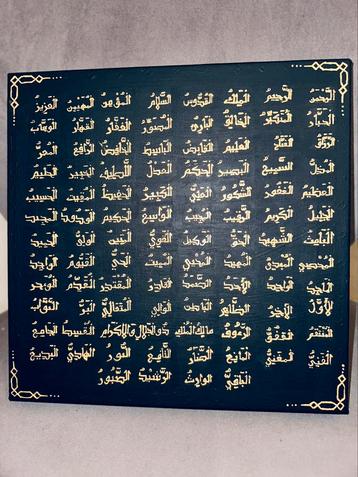 الرَّحْمَنُ الرَّحِيمُ الْمَلِكُ الْقُدُّوسُ السَّلَامُ الْمُؤْمِنُ الْمُهَيْمِنُ الْعَزِيزُ
الْجَبَّارُ الْمُتَكَبِّرُ الْخَالِقُ الْبَارِئُ الْمُصَوِّرُ الْغَفَّارُ الْقَهَّارُ الْوَهَّابُ
الرَّزَّاقُ الْفَتَّاحُ الْعَلِيمُ الْقَابِضُ الْبَاسِطُ الْخَافِضُ الرَّافِعُ الْمُعِزُّ
الْمُذِلُّ السَّمِيعُ الْبَصِيرُ الْحَكَمُ الْعَدْلُ اللَّطِيفُ الْخَبِيرُ الْحَلِيمُ
الْعَظِيمُ الْغَفُورُ الشَّكُورُ الْعَلِيُّ الْكَبِيرُ الْحَفِيظُ الْمُقِيتُ الْحَسِيبُ
الْجَلِيلُ الْكَرِيمُ الرَّقِيبُ الْمُجِيبُ الْوَاسِعُ الْحَكِيمُ الْوَدُودُ الْمَجِيدُ
الْبَاعِثُ الشَّهِيدُ الْحَقُّ الْوَكِيلُ الْقَوِيُّ الْمَتِينُ الْوَلِيُّ الْحَمِيدُ
الْمُحْصِي الْمُبْدِئُ الْمُعِيدُ الْمُحْيِي الْمُمِيتُ الْحَيُّ الْقَيُّومُ الْوَاجِدُ
الْمَاجِدُ الْوَاحِدُ الْأَحَدُ الصَّمَدُ الْقَادِرُ الْمُقْتَدِرُ الْمُقَدِّمُ الْمُؤَخِّرُ
الْأَوَّلُ الْآخِرُ الظَّاهِرُ الْبَاطِنُ الْوَالِي الْمُتَعَالِي الْبَرُّ التَّوَّابُ
الْمُنْتَقِمُ الْعَفُوُّ الرَّؤُوفُ مَالِكُ الْمُلْكِ ذُو الْجَلَالِ وَالْإِكْرَامِ الْمُقْسِطُ الْجَامِعُ
الْغَنِيُّ الْمُغْنِي الْمَانِعُ الضَّارُّ النَّافِعُ النُّورُ الْهَادِي الْبَدِيعُ
الْبَاقِي الْوَارِثُ الرَّشِيدُ الصَّبُورُ